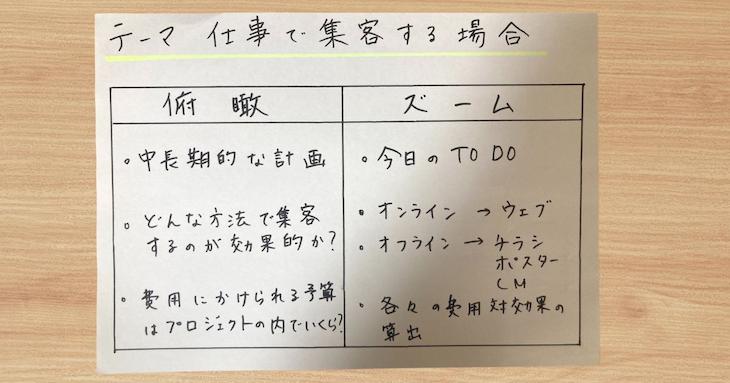 テーマ 仕事で集客する場合
俯瞰
・中長期的な計画
・どんな方法で集客
するのが効果的か?
・費用にかけられる予算
はプロジェクトの内でいくら?
ズーム
・今日のTO DO
・オンライン → ウェブ
・オフライン → チラシ
ポスター
CM
・各々の費用対効果の
算出